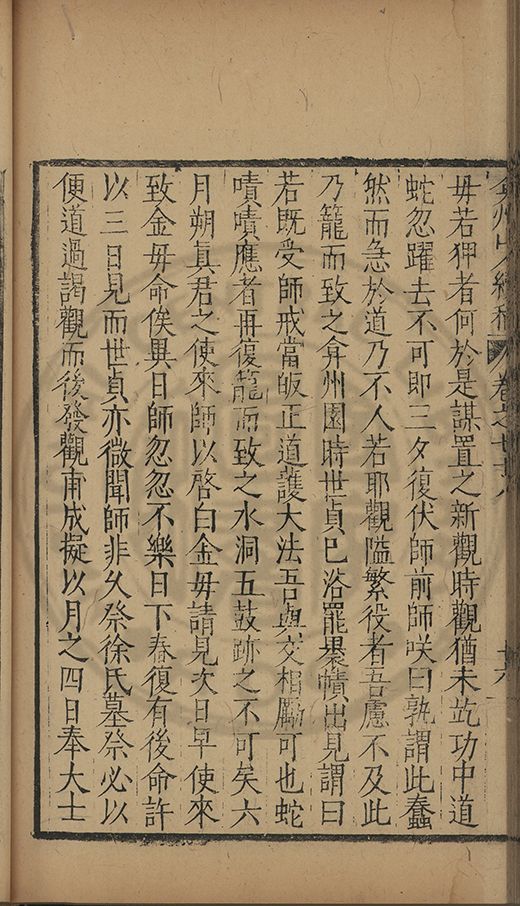 弇州山人續稿 卷之七十八 十六
毋若狎者何於是謀置之新觀時觀猶未訖功中道
蛇忽躍去不可即三夕復伏師前師咲曰孰謂此蠢
然而急於道乃不人若耶觀隘繁役者吾慮不及此
乃籠而致之弇州園時世貞巳浴罷櫜幘出見謂曰
若既受師戒當皈正道護大法吾與交相勵可也蛇
嘖嘖應者再復籠而致之水洞五鼓跡之不可矣六
月朔真君之使來師以啓白金毋請見次日早使來
致金毋命俟異日師忽忽不樂日下舂復有後命許
以三日見而世貞亦微聞師非久祭徐氏墓祭必以
便道過謁觀而後發觀甫成擬以月之四日奉大士